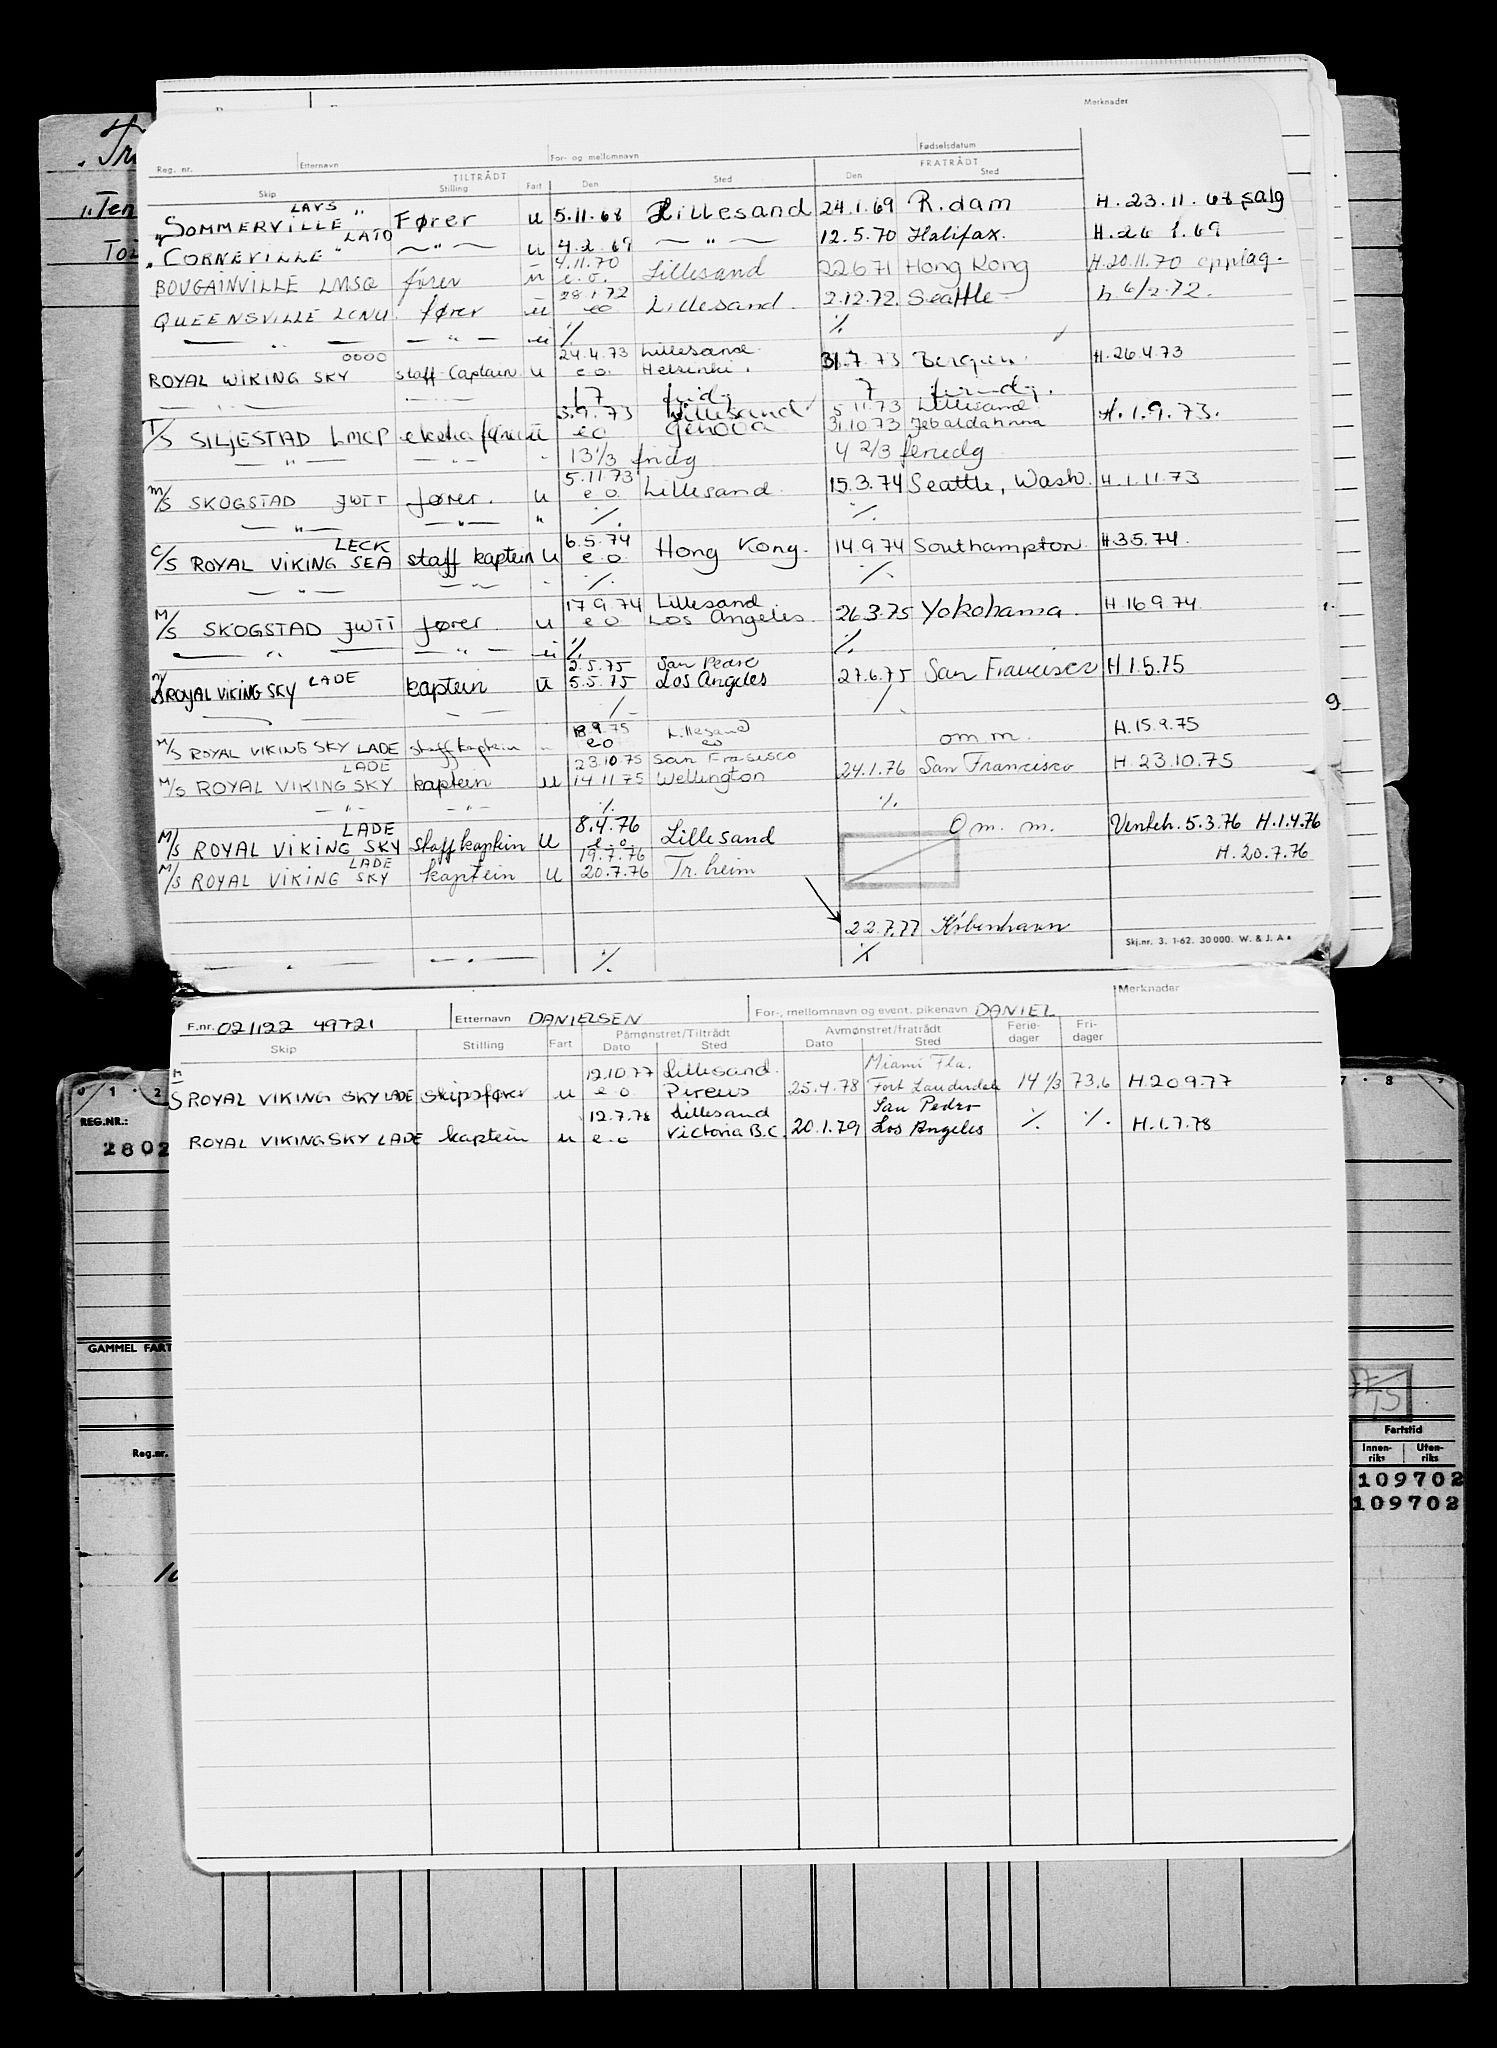 Merknader
Reg. nr. Etternavn For- og mellomnavn Fødselsdatum
TILTRÅDT FRATRÅDT
Skip Stilling Fart Den Sted Den Sted
LAVS
"SOMMERVILLE" Fører u 5.11.68 Lillesand 24.1.69 R.dam H. 23.11.68 salg
LATO
"CORNEVILLE" — " — u 4.2.69 — " — 12.5.70 Halifax. H. 26 1.69
4.11.70
BOUGAINVILLE LMSQ fører u e.o. Lillesand 22.6.71 Hong Kong H.20.11.70 opplag.
28.1.72
QUEENSVILLE LCNU fører u eo Lillesand. 2.12.72. Seattle h 6/2.72.
— " — — " — u % %
OOOO 24.4.73 Lillesand
ROYAL WIKING SKY staff-Captain u e.o. Helsinki. 31.7.73 Bergen. H.26.4.73
— " — — " — 17 fridg 7 feriedg.
3.9.73 Lillesand 5.11.73 Lillesand
T/S SILJESTAD LMCP ekstra fører u eo Genova 31.10.73 H. 1.9.73.
— " — — " — " 13 1/3 fridg 4 2/3 feriedg
5.11.73
M/S SKOGSTAD JWTT fører. u e o. Lillesand. 15.3.74 Seattle, Wash. H.1.11.73
— " — — " — " %. %.
LECK 6.5.74
C/S ROYAL VIKING SEA staff kaptein u e.o. Hong Kong. 14.9.74 Southampton. H.3.5.74.
— " — — " — %. %.
17.9.74 Lillesand
M/S SKOGSTAD JWTT fører u e o Los Angeles. 26.3.75 Yokohama. H.16.9.74.
— " — — " — u %. %.
2.5.75 San Pedro
M/S ROYAL VIKING SKY LADE kaptein u 5.5.75 Los Angeles 27.6.75 San Francisco H.1.5.75
— " — — " — %. %.
18.9.75 Lillesand
M/S ROYAL VIKING SKY LADE staffkaptein " eo eo om.m. H.15.9.75
LADE 23.10.75 San Fransisco
M/S ROYAL VIKING SKY kaptein u 14.11.75 Wellington 24.1.76 San Francisco H. 23.10.75
— " — — " — %. %.
LADE 8.4.76
M/S ROYAL VIKING SKY staffkaptein u e.o Lillesand Om.m. 5.3.76 H.1.4.76
LADE 19.7.76 H.20.7.76
M/S ROYAL VIKING SKY kaptein u 20.7.76 Tr.heim
22.7.77 København
Skj.nr. 3. 1-62. 30000. W. & J. A.s
— " — — " — %. %
F.nr. 021122 49721 Etternavn DANIELSEN For-, mellomnavn og event. pikenavn DANIEL Merknader
Skip Stilling Fart Påmønstret/Tiltrådt Avmønstret/fratrådt Feriedager Fridager
Dato Sted Dato Sted
12.10.77 Lillesand. Miami Fla.
S ROYAL VIKING SKY LADE skipsfører u e.o Pireus 25.4.78 Fort Lauderdale 14 1/3 73,6 H.20.9.77
12.7.78 Lillesand San Pedro
ROYAL VIKING SKY LADE kaptein u e.o Victoria B.C. 20.1.79 Los Angeles %. %. H.1.7.78
0 1 2
7 8
REG.NR.:
2802
GAMMEL FART
Reg.nr.
Fartstid
Innenriks Utenriks
109702
109702